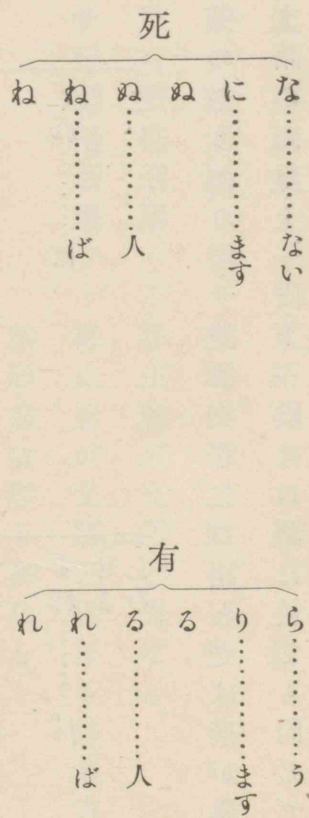 死
な……………ない
に……………ます
ぬ
ぬ……………人
ね……………ば
ね
有
ら……………う
り……………ます
る
る……………人
れ……………ば
れ